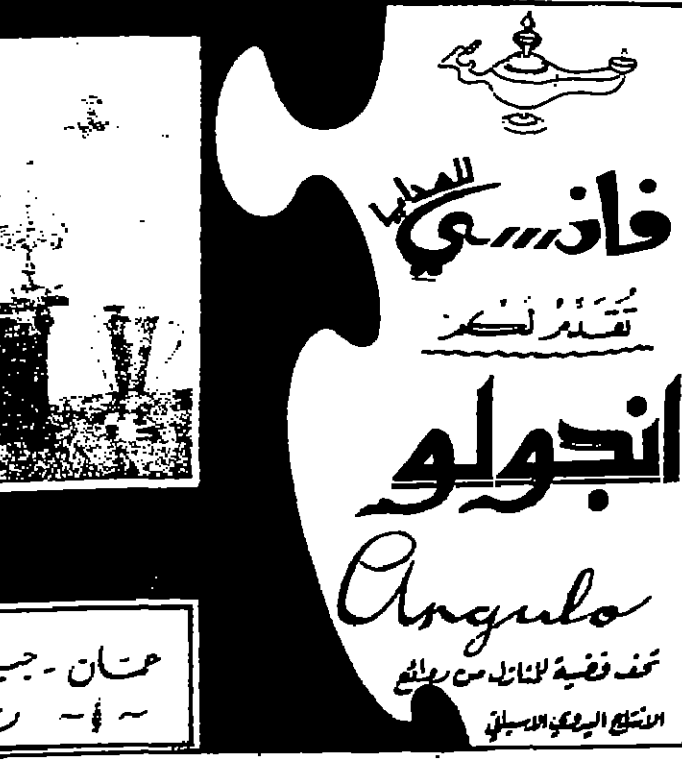 فانسي
للهدايا
تُقَدّمُ لَكُم
انجولو
Angulo
تحف فضية للمنازل من روائع
الانتاج اليدوي الاسباني
عمّان - جب